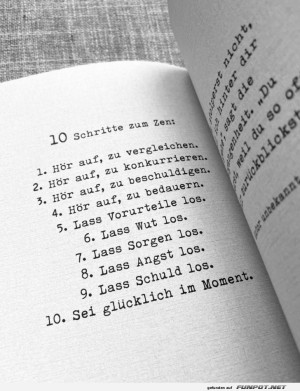 10 Schritte zum Zen:
1. Hör auf, zu vergleichen.
2. Hör auf, zu konkurrieren.
3. Hör auf, zu beschuldigen.
4. Hör auf, zu bedauern.
5. Lass Vorurteile los.
6. Lass Wut los.
7. Lass Sorgen los.
8. Lass Angst los.
9. Lass Schuld los.
10. Sei glücklich im Moment.
nicht,
hinter dir
sagt die
"Du
weil du so of
zurückblickst
unbekannt
gefunden auf FUNPOT.NET